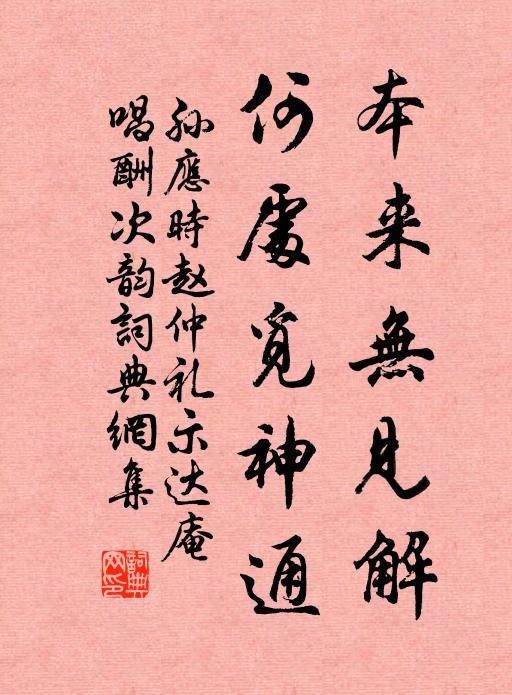 本来無見解
何處覓神通
孙應時赵仲礼示达庵
唱酬次韵詞典網集
詞典網印